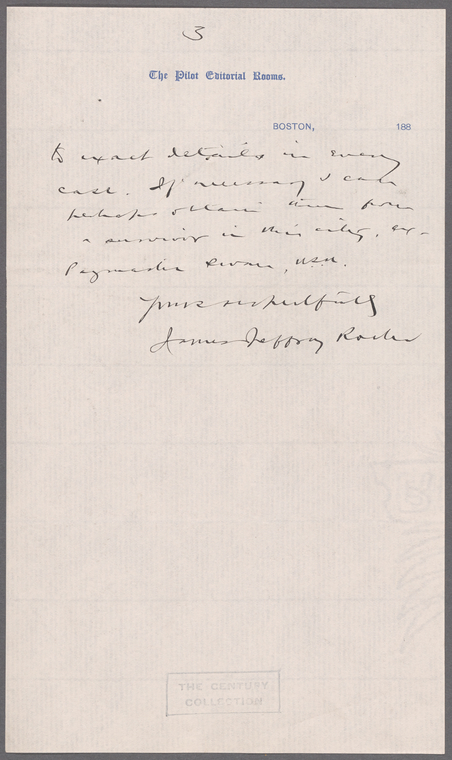 3
The Pilot Editorial Rooms.
BOSTON, 188
to exact details in every
case. If necessary I can
perhaps obtain them from
a survivor in this city, ex-
Paymaster , USN.
Yours respectfully
James Jeffrey Roche
THE CENTURY
COLLECTION